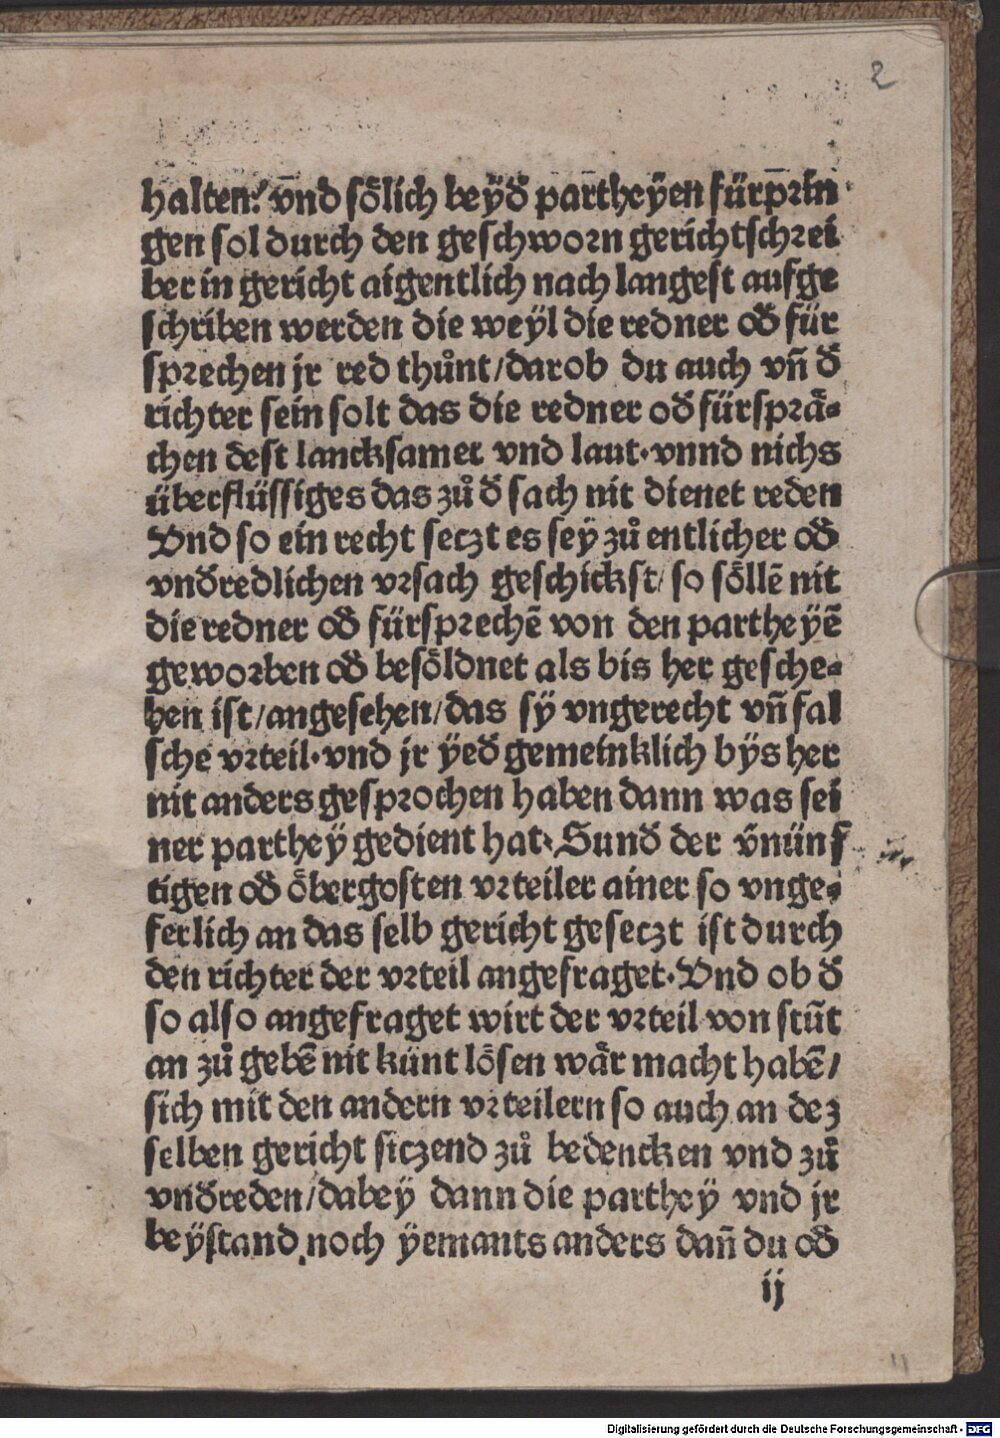 2
halten? vn̄d soͤlich beyd̄ partheyen fürprin
gen sol durch den geschworn gerichtschrei
ber in gericht aigentlich nach langest aufge
schriben werden die weyl die redner od̄ für
sprechen jr red thuͦnt/darob du auch vn̄ d̄
richter sein solt das die redner od̄ fürspraͤ⸗
chen dest lancksamer vnd laut·vnnd nichs
überflüssiges das zuͦ d̄ sach nit dienet reden
Vnd so ein recht seczt es sey zuͦ entlicher od̄
vnd̄redlichen vrsach geschickst/ so soͤllē nit
die redner od̄ fürsprechē von den partheyē
geworben od̄ besoͤldnet als bis her gesche⸗
hen ist/angesehen/das sy vngerecht vn̄ fal
sche vrteil·vnd jr yed̄ gemeinklich bys her
nit anders gesprochen haben dann was sei
ner parthey gedient hat·Sund̄ der v̄nünf
tigen od̄ oͤbergosten vrteiler ainer so vnge⸗
ferlich an das selb gericht geseczt ist durch
den richter der vrteil angefraget·Vnd ob d̄
so also angefraget wirt der vrteil von stūt
an zuͦ gebē nit künt loͤsen waͤr macht habē/
sich mit den andern vrteilern so auch an dez
selben gericht siczend zuͦ bedencken vnd zuͦ
vnd̄reden/dabey dann die parthey vnd jr
beystand noch yemants anders dan̄ du od̄
ij
11
Digitalisierung gefördert durch die Deutsche Forschungsgemeinschaft - DFG